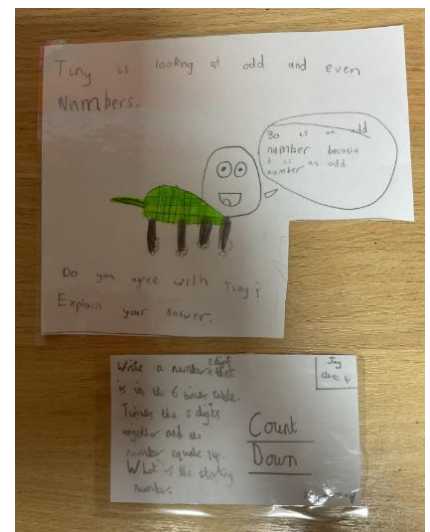 Tiny is looking at odd and even
Numbers.
30 is an odd
number because
it is an odd
number
Do you agree with Tiny?
Explain your answer.
Write a number 2 digit that
is in the 6 times table.
Times the 2 digits
together and the
number equals 14.
What is the starting
number.
Count
Down